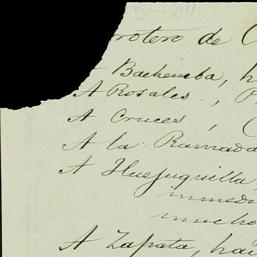 rotero de
Bachimba, h
A Rosales,
A Cruces,
A la Ramada
A Huejuquilla,
inmedi
mucho
A Zapata, hai